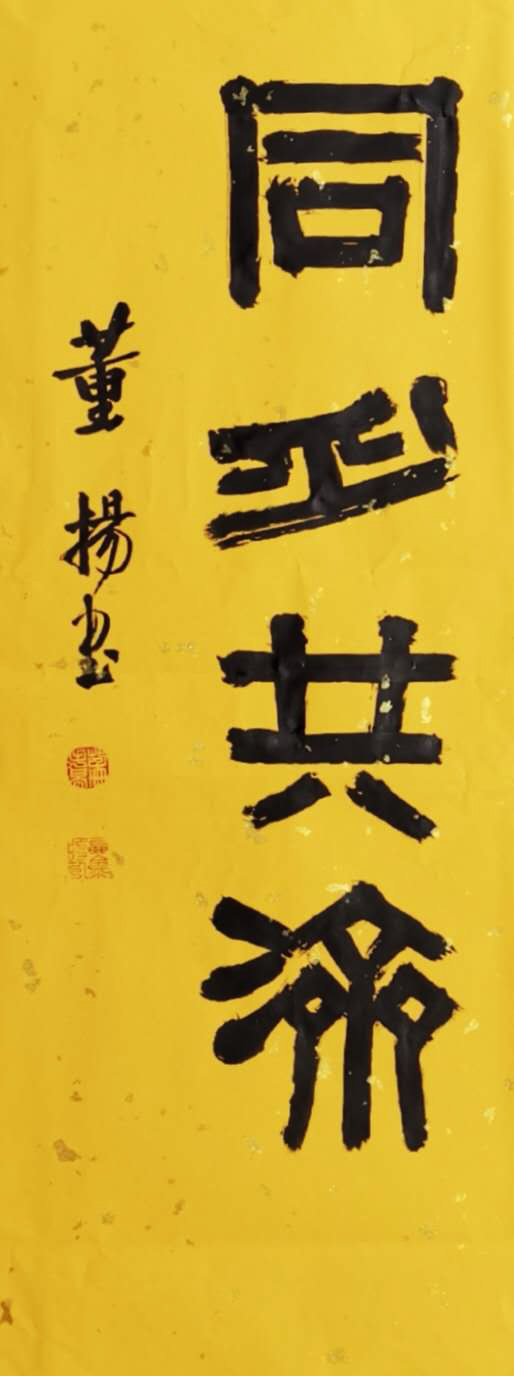 同舟共濟
董揚書